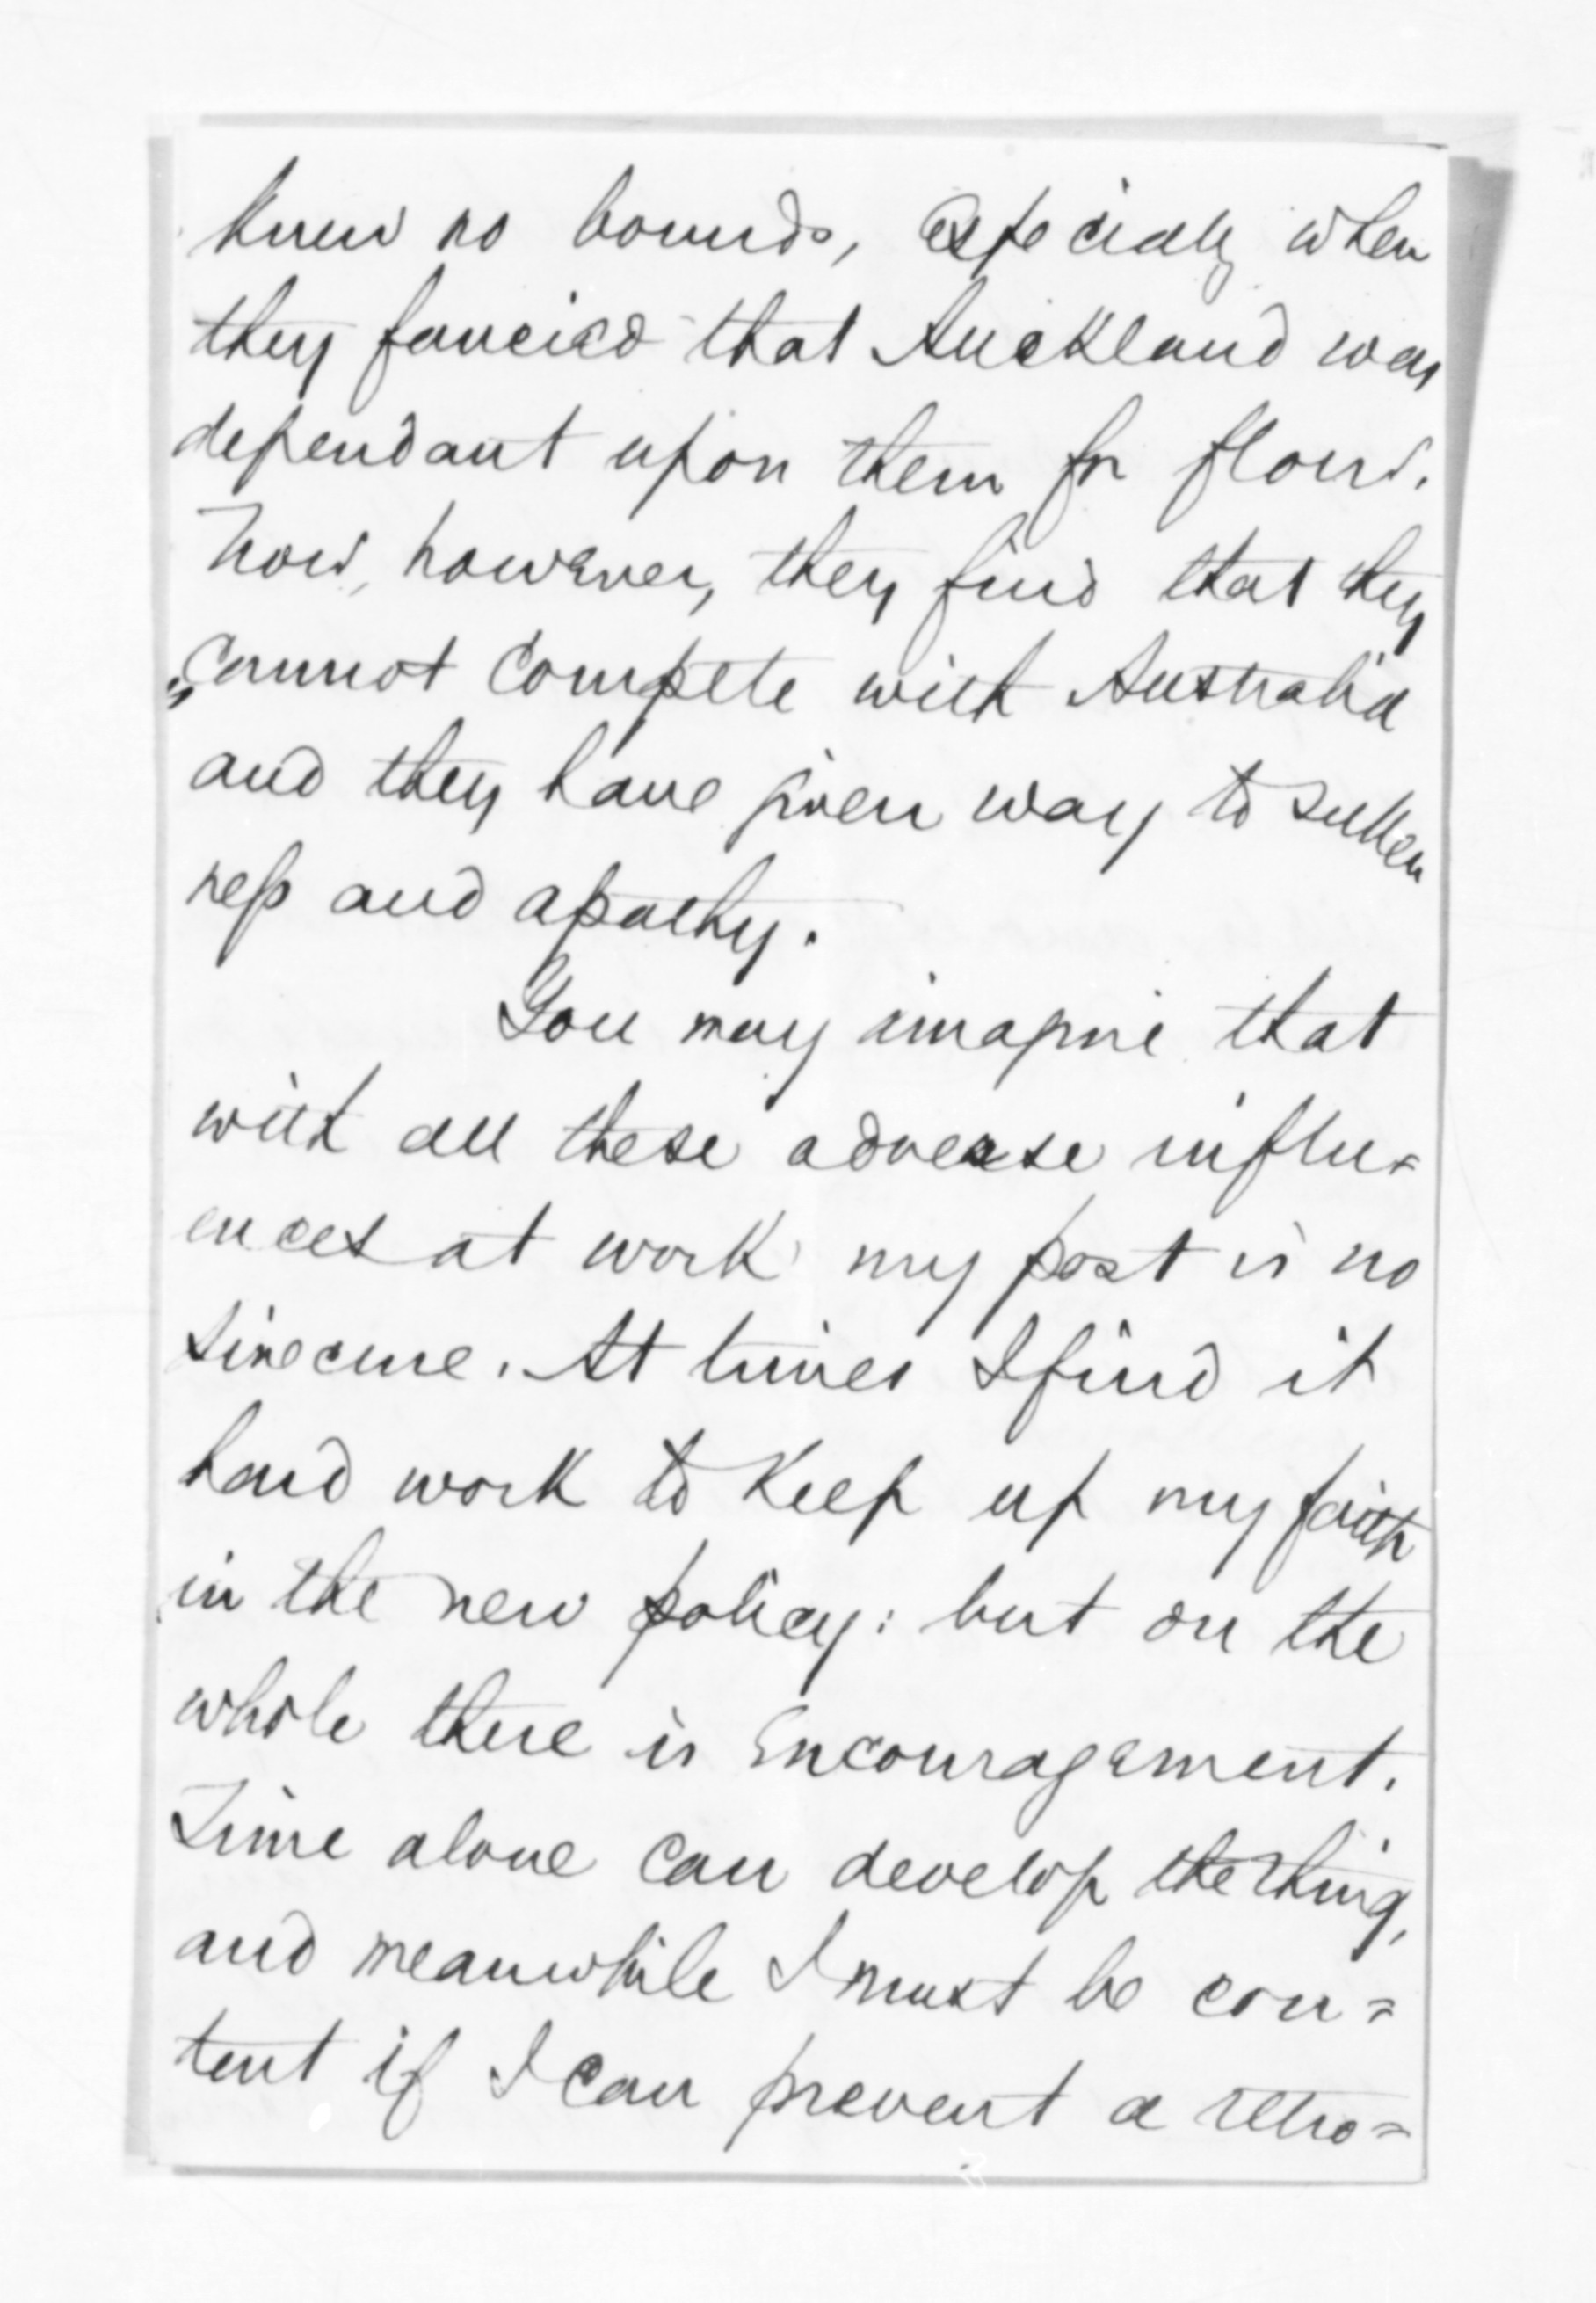 knew no bounds, especially when
they fancied that Auckland was
dependant upon them for flour.
Now, however, they find that they
cannot compete with Australia
and they have given way to sullen
ness and apathy.
You may imagine that
with all these adverse influ=
ences at work my post is no
sinecure. At times I find it
hard work to keep up my faith
in the new policy: but on the
whole there is encouragement.
Time alone can develop the thing,
and meanwhile I must be con=
tent if I can prevent a retro=